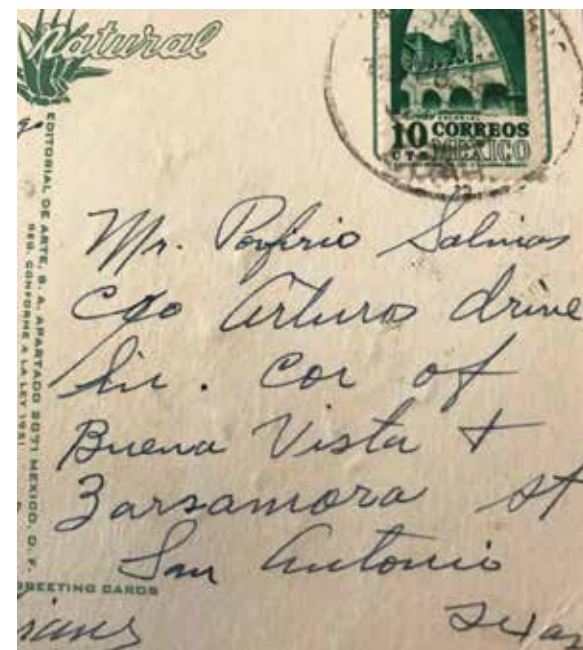 Natural
10 CORREOS
CTS MEXICO
EDITORIAL DE ARTE, S. A. APARTADO 2071 MEXICO, D. F.
REG. CONFORME A LA LEY 1951
Mr. Porfirio Salinas
c/o Arturos drive
In. Cor of
Buena Vista +
Zarsamora st
San Antonio
Texas
GREETING CARDS